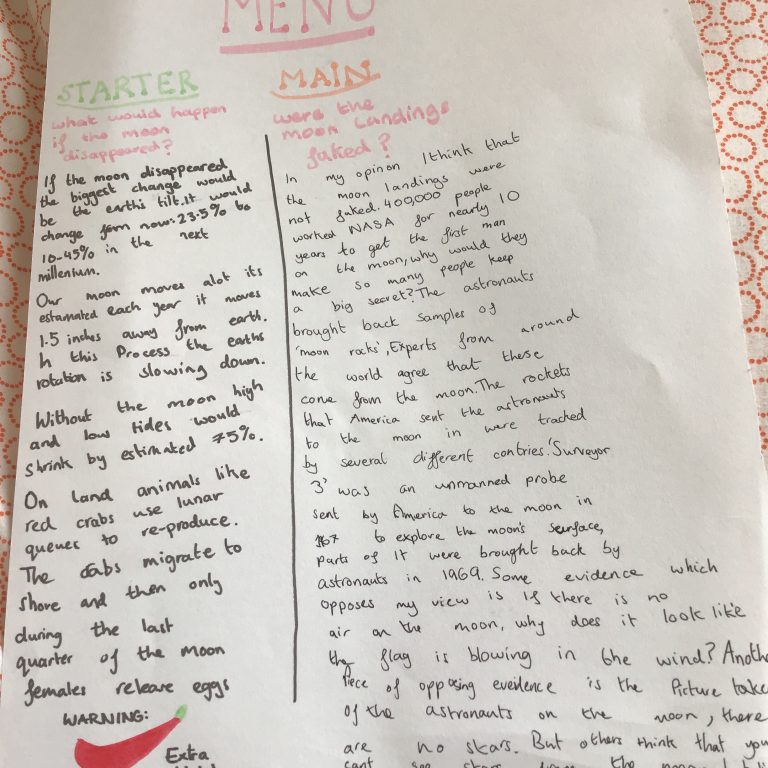 MENU
STARTER
what would happen
if the moon
disappeared?
If the moon disappeared
the biggest change would
be the earth's tilt.It would
change form now:23.5% to
10-45% in the next
millenium.
Our moon moves alot its
estamated each year it moves
1.5 inches away from earth.
In this Process the earths
rotation is slowing down.
Without the moon high
and low tides would
shrink by estimated 75%.
On land animals like
red crabs use lunar
queues to re-produce.
The crabs migrate to
shore and then only
during the last
quarter of the moon
females release eggs
WARNING:
Extra
MAIN
were the
moon Landings
faked?
In my opinon I think that
the moon landings were
not faked. 400,000 people
worked NASA for nearly 10
years to get the first man
on the moon, why would they
make so many people keep
a big secret? The astronauts
brought back samples of
'moon rocks', Experts from around
the world agree that these
come from the moon. The rockets
that America sent the astronauts
to the moon in were tracked
by several different contries. 'Surveyor
3' was an unmanned probe
sent by America to the moon in
to explore the moon's surface,
parts of it were brought back by
astronauts in 1969. Some evidence which
opposes my view is if there is no
air on the moon, why does it look like
the flag is blowing in the wind? Anoth
Piece of opposing eveidence is the Picture take
of the astronauts on the moon, there
are no stars. But others think that you
cant see stars the